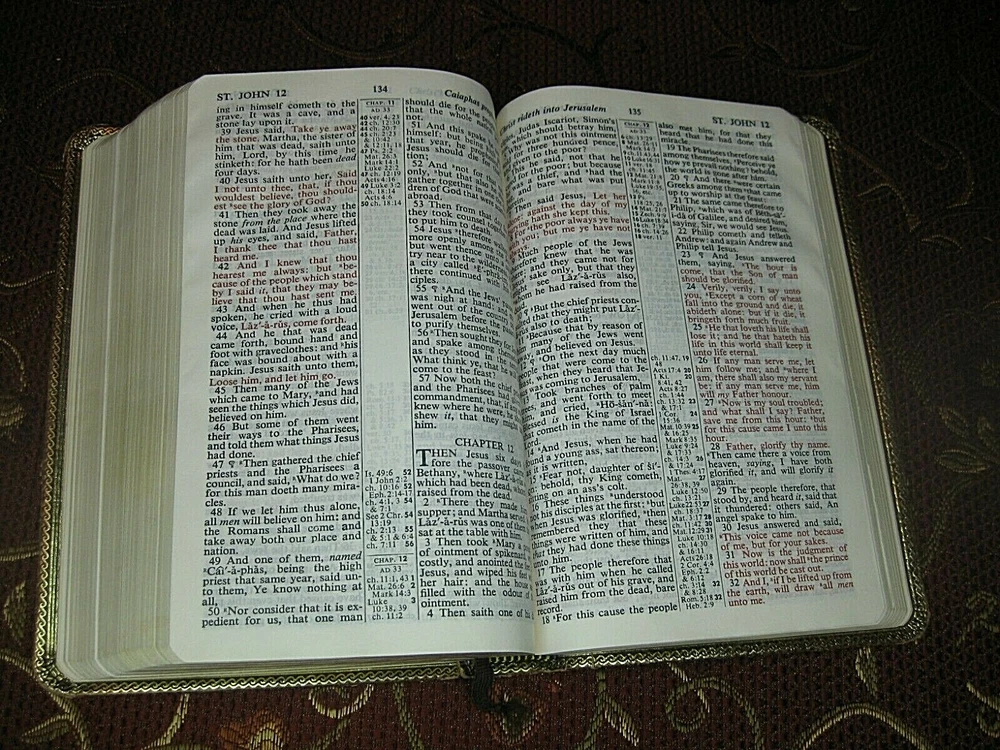 ST. JOHN 12
134
Caiaphas
ing in himself cometh to the
grave. It was a cave, and a
stone lay upon it.
39 Jesus said, Take ye away
the stone. Martha, the sister of
him that was dead, saith unto
him, Lord, by this time he
stinketh: for he hath been dead
four days.
40 Jesus saith unto her, Said
I not unto thee, that, if thou
wouldest believe, thou should-
est see the glory of God?
41 Then they took away the
stone from the place where the
dead was laid. And Jesus lifted
up his eyes, and said, Father,
I thank thee that thou hast
heard me.
42 And I knew that thou
hearest me always: but be-
cause of the people which stand
by I said it, that they may be-
lieve that thou hast sent me.
43 And when he thus had
spoken, he cried with a loud
voice, Lăz'-å-rŭs, come forth.
44 And he that was dead
came forth, bound hand and
foot with graveclothes: and his
face was bound about with a
napkin. Jesus saith unto them,
Loose him, and let him go.
45 Then many of the Jews
which came to Mary, and had
seen the things which Jesus did,
believed on him.
46 But some of them went
their ways to the Pharisees,
and told them what things Jesus
had done.
47 ¶ Then gathered the chief
priests and the Pharisees a
council, and said, What do we?
for this man doeth many mira-
cles.
48 If we let him thus alone,
all men will believe on him: and
the Romans shall come and
take away both our place and
nation.
49 And one of them, named
Cāi'-å-phăs, being the high
priest that same year, said un-
to them, Ye know nothing at
all,
50 Nor consider that it is ex-
pedient for us, that one man
CHAP. 11
AD 33
Is. 49:6 52
1 John 2:2
ch. 10:16 52
Eph. 2:14-17
ch. 4:1, 3 54
& 7:1
See 2 Chr. 54
13:19
ch. 2:13 55
& 5:1 & 6:4
ch. 7:11 56
CHAP. 12
AD 33
ch. 11:1, 43 1
Mat. 26:6 2
Mark 14:3
Luke 3
10:38, 39
ch. 11:2
should die for the
that the whole
not.
51 And this spa
himself: but being
that year, he p
Jesus should die
tion;
52 And not for
only, but that also
gather together in
dren of God that we
broad.
53 Then from that
they took counse
to put him to death
54 Jesus therefore wal
more openly among
but went thence un
try near to the wildern
a city called
there continued with
ciples.
55 ¶ And the Jews'
was nigh at hand: an
went out of the
Jerusalem before the
to purify themselves.
56 Then sought they for
and spake among the
as they stood in th
What think ye, that he
come to the feast?
57 Now both the chief
and the Pharisees had
commandment, that, if
knew where he were, h
shew it, that they mi
him.
CHAPTER 12
THEN Jesus six da
fore the passover ca
Bethany, where Lăz'-å-rŭs
which had been dead,
raised from the dead.
2 There they made h
supper; and Martha serv
Lăz'-å-rŭs was one of the
sat at the table with him.
3 Then took Mary a p
of ointment of spikenar
costly, and anointed the
Jesus, and wiped his fee
her hair: and the hous
filled with the odour o
ointment.
4 Then saith one of hi
rideth into Jerusalem
135
ST. JOHN 12
Judas Iscariot, Simon's
which should betray him,
was not this ointment
three hundred pence,
given to the poor?
he said, not that he
for the poor; but because
thief, and had the
and bare what was put
Then said Jesus, Let her
against the day of my
hath she kept this.
For the poor always ye have
you; but me ye have not
Much people of the Jews
knew that he was
and they came not for
sake only, but that they
see Lăz'-å-rŭs also,
whom he had raised from the
But the chief priests con-
ted that they might put Lăz'-
also to death;
Because that by reason of
many of the Jews went
and believed on Jesus.
On the next day much
people that were come to the
when they heard that Je-
was coming to Jerusalem,
Took branches of palm
and went forth to meet
and cried, Hō-săn'-nå:
is the King of Israel
that cometh in the name of the
And Jesus, when he had
found a young ass, sat thereon;
it is written,
15 Fear not, daughter of Sī'-
behold, thy King cometh,
sitting on an ass's colt.
16 These things understood
his disciples at the first: but
when Jesus was glorified, then
remembered they that these
things were written of him, and
that they had done these things
unto him.
17 The people therefore that
was with him when he called
Lăz'-å-rŭs out of his grave, and
raised him from the dead, bare
record.
18 For this cause the people
also met him, for that they
heard that he had done this
miracle.
19 The Pharisees therefore said
among themselves, Perceive ye
how ye prevail nothing? behold,
the world is gone after him.
20 ¶ And there were certain
Greeks among them that came
up to worship at the feast:
21 The same came therefore to
Philip, which was of Bĕth-sā'-
i-då of Galilee, and desired him,
saying, Sir, we would see Jesus.
22 Philip cometh and telleth
Andrew: and again Andrew and
Philip tell Jesus.
23 ¶ And Jesus answered
them, saying, The hour is
come, that the Son of man
should be glorified.
24 Verily, verily, I say unto
you, Except a corn of wheat
fall into the ground and die, it
abideth alone: but if it die, it
bringeth forth much fruit.
25 He that loveth his life shall
lose it; and he that hateth his
life in this world shall keep it
unto life eternal.
26 If any man serve me, let
him follow me; and where I
am, there shall also my servant
be: if any man serve me, him
will my Father honour.
27 Now is my soul troubled;
and what shall I say? Father,
save me from this hour: but
for this cause came I unto this
hour.
28 Father, glorify thy name.
Then came there a voice from
heaven, saying, I have both
glorified it, and will glorify it
again.
29 The people therefore, that
stood by, and heard it, said that
it thundered: others said, An
angel spake to him.
30 Jesus answered and said,
This voice came not because
of me, but for your sakes.
31 Now is the judgment of
this world: now shall the prince
of this world be cast out.
32 And I, if I be lifted up from
the earth, will draw all men
unto me.